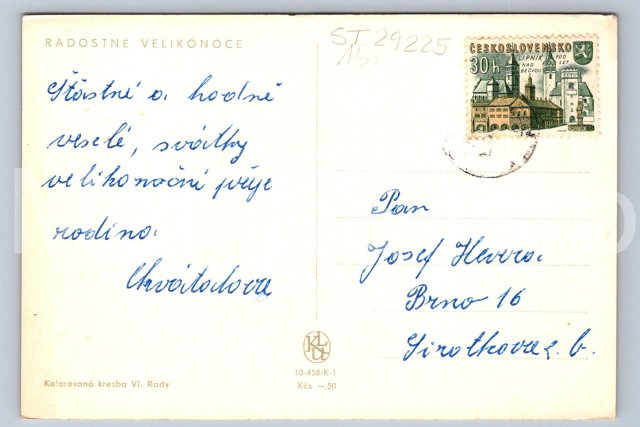 RADOSTNÉ VELIKONOCE
ST 29225
15,
ČESKOSLOVENSKO
30 h
LIPNÍK
NAD
BEČVOU
700
LET
Šťastné a hodně
veselé, svátky
velikonoční přeje
rodina
Chvátalova
Pan
Josef Hevera
Brno 16
Sirotkova 2. b.
KLU
10-458-K-1
Kčs -,50
Kolorovaná kresba Vl. Rady